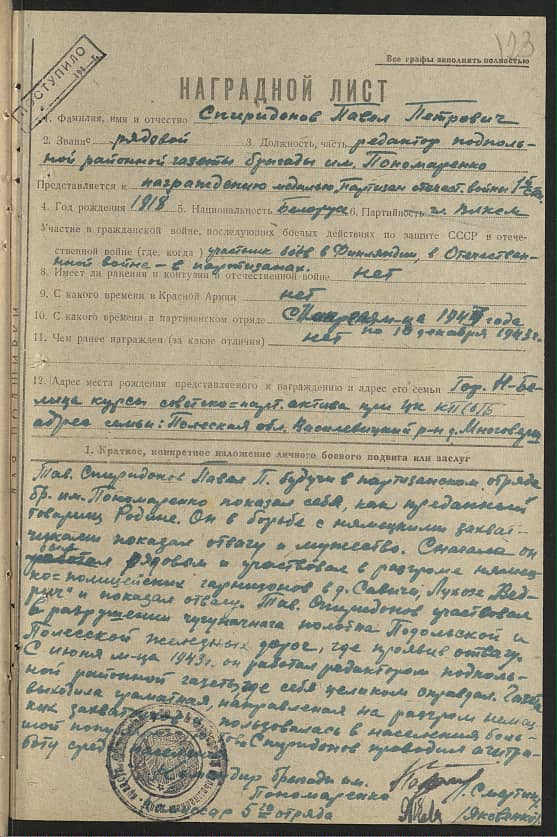 123
ПОСТУПИЛО
Все графы заполнять полностью
НАГРАДНОЙ ЛИСТ
1. Фамилия, имя и отчество Спиридонов Павел Петрович
2. Звание рядовой 3. Должность, часть редактор подполь-
ной районной газеты бригады им. Пономаренко
Представляется к награждению медалью "Партизан отечест. войны" 1й ст.
4. Год рождения 1918 5. Национальность белорус 6. Партийность чл. ВЛКСМ
Участие в гражданской войне, последующих боевых действиях по защите СССР в отече-
ственной войне (где, когда) участник боёв в Финляндии, в Отечествен-
ной войне – в партизанах.
8. Имеет ли ранения и контузии в отечественной войне нет
9. С какого времени в Красной Армии нет
10. С какого времени в партизанском отряде с м-ца года
по 18 декабря 1943 г.
11. Чем ранее награжден (за какие отличия) нет
12. Адрес места рождения представляемого к награждению и адрес его семьи Гор. Н-Бе-
лица курсы советско=парт. актива при ЦК КП(б)Б
адрес семьи: Полесская обл. Василевицкий р-н д.
1. Краткое, конкретное изложение личного боевого подвига или заслуг
Тов. Спиридонов Павел П. будучи в партизанском отряде
бр. им. Пономаренко показал себя, как преданный
товарищ Родине. Он в борьбе с немецкими захват-
чиками показал отвагу и мужество. Сначала он
рядовым и участвовал в разгроме немец-
ко=полицейских гарнизонов в д. Савичи,
и показал отвагу. Тов. Спиридонов участвовал
в разрушении полотна и
Полесской железных дорог, где проявив отвагу.
С июня м-ца 1943 г. он работал редактором подполь-
ной районной газеты, где себя целиком оправдал. Газета
выходила грамотная, направленная на разгром немец-
ких захват пользовалась в населения боль-
шой попу Спиридонов проводил агитра-
боту сред
Командир бригады им.
Пономаренко
Комиссар 5го отряда